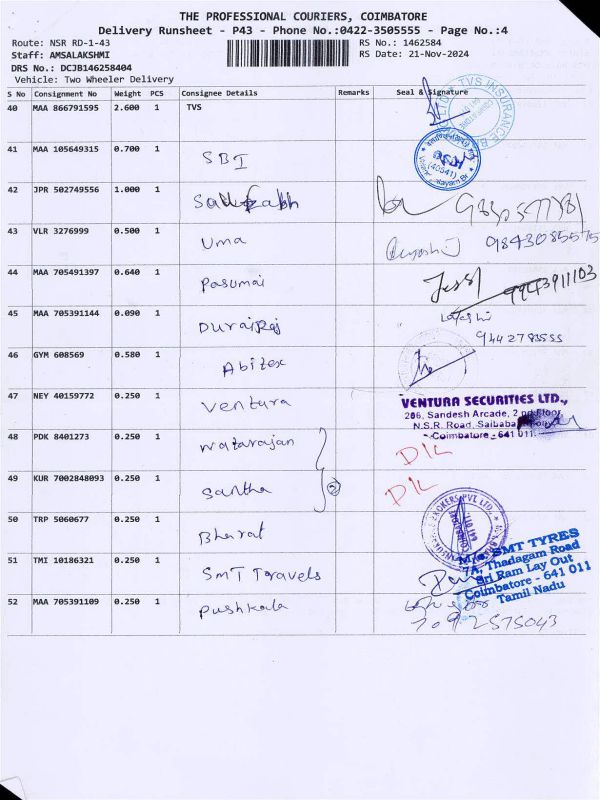 THE PROFESSIONAL COURIERS, COIMBATORE
Delivery Runsheet - P43 - Phone No.:0422-3505555 - Page No.:4
Route: NSR RD-1-43
RS No.: 1462584
Staff: AMSALAKSHMI
RS Date: 21-Nov-2024
DRS No.: DCJB146258404
Vehicle: Two Wheeler Delivery
S No Consignment No Weight PCS Consignee Details Remarks Seal & Signature
40 MAA 866791595 2.600 1 TVS
TVS INSURANCE
41 MAA 105649315 0.700 1 SBI
(40541)
42 JPR 502749556 1.000 1
43 VLR 3276999 0.500 1 Uma 9843085575
44 MAA 705491397 0.640 1 Pasumai 9943911103
45 MAA 705391144 0.090 1 Durairaj
9442783555
46 GYM 608569 0.580 1 Abitex
47 NEY 40159772 0.250 1 Ventura
VENTURA SECURITIES LTD.,
206, Sandesh Arcade, 2nd Floor,
N.S.R. Road, Saibaba
Coimbatore - 641 011.
48 PDK 8401273 0.250 1 Natarajan D/L
49 KUR 7002848093 0.250 1 Santha D/L
2
50 TRP 5060677 0.250 1 Bharat
BROKERS PVT LTD.
51 TMI 10186321 0.250 1 SMT Travels
M/s. SMT TYRES
7A, Thadagam Road
Sri Ram Lay Out
Coimbatore - 641 011
Tamil Nadu
52 MAA 705391109 0.250 1 Pushkala
7092575043